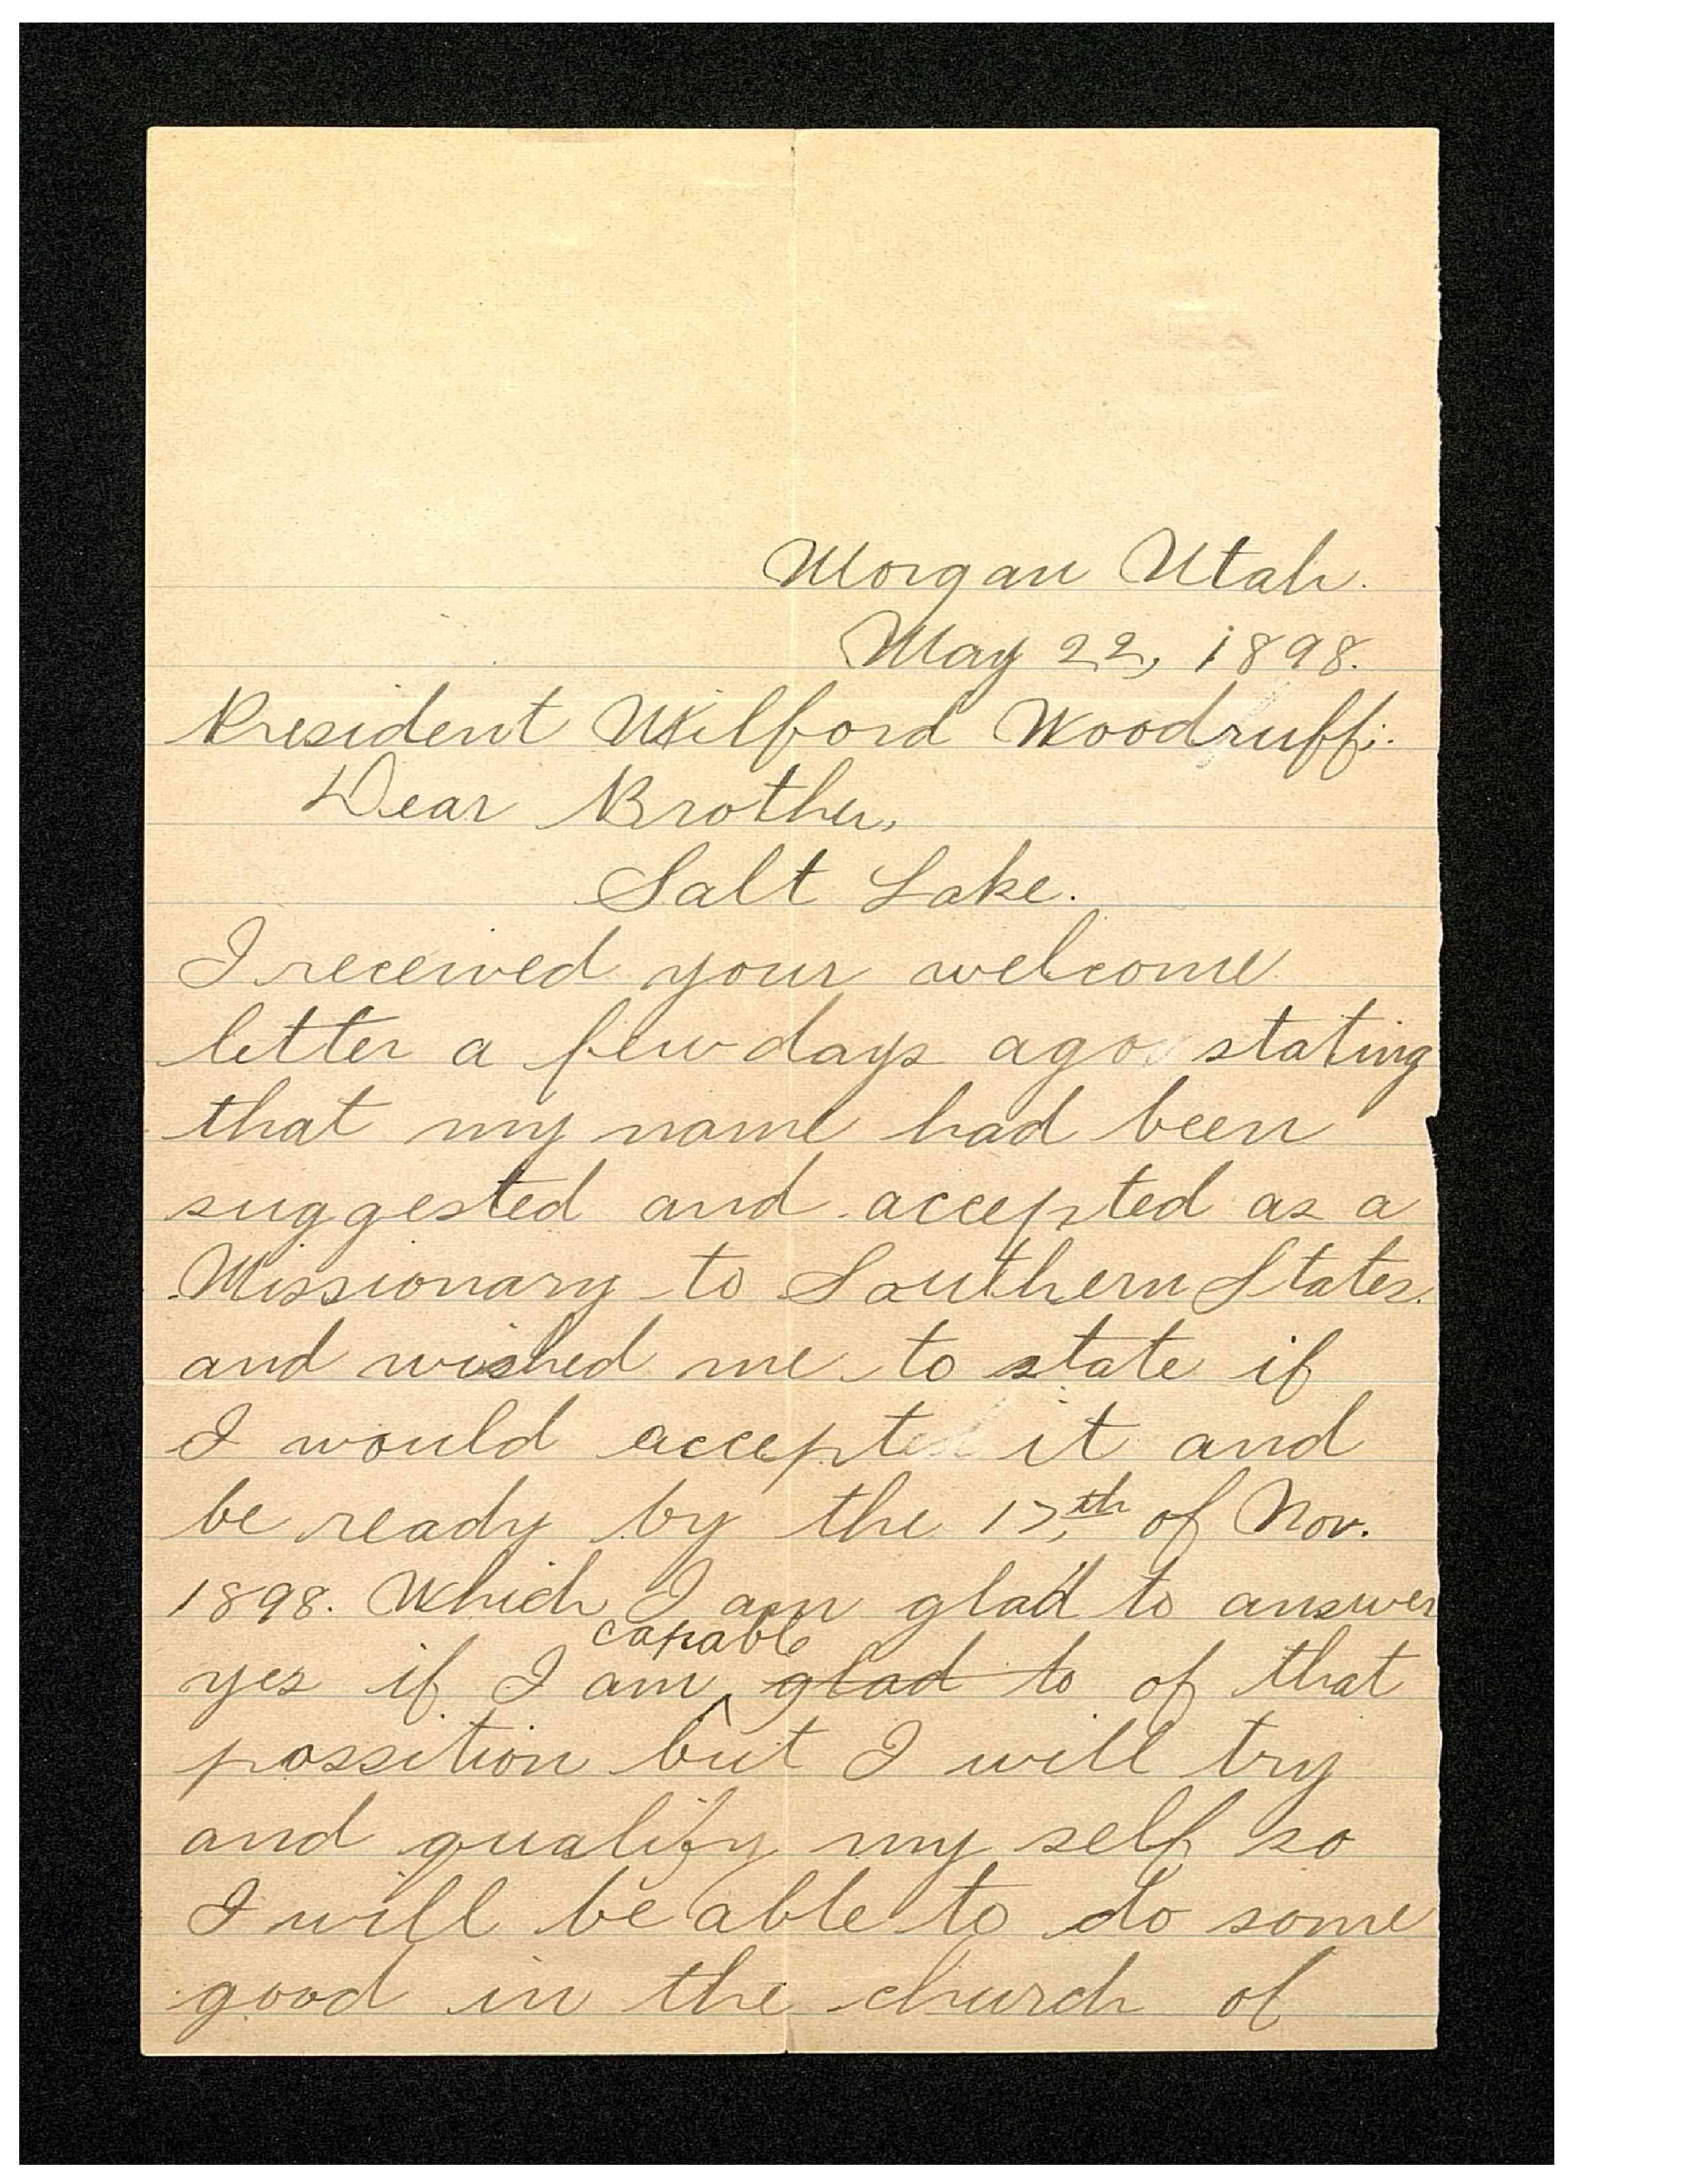 Morgan Utah.
May 22, 1898.
President Wilford Woodruff:
Dear Brother,
Salt Lake.
I received your welcome
letter a few days ago stating
that my name had been
suggested and accepted as a
Missionary to Southern States.
and wished me to state if
I would accept it and
be ready by the 17th of Nov.
1898. Which I am glad to answer
capable
yes if I am ^ glad to of that
possition but I will try
and qualify my self so
I will be able to do some
good in the church of